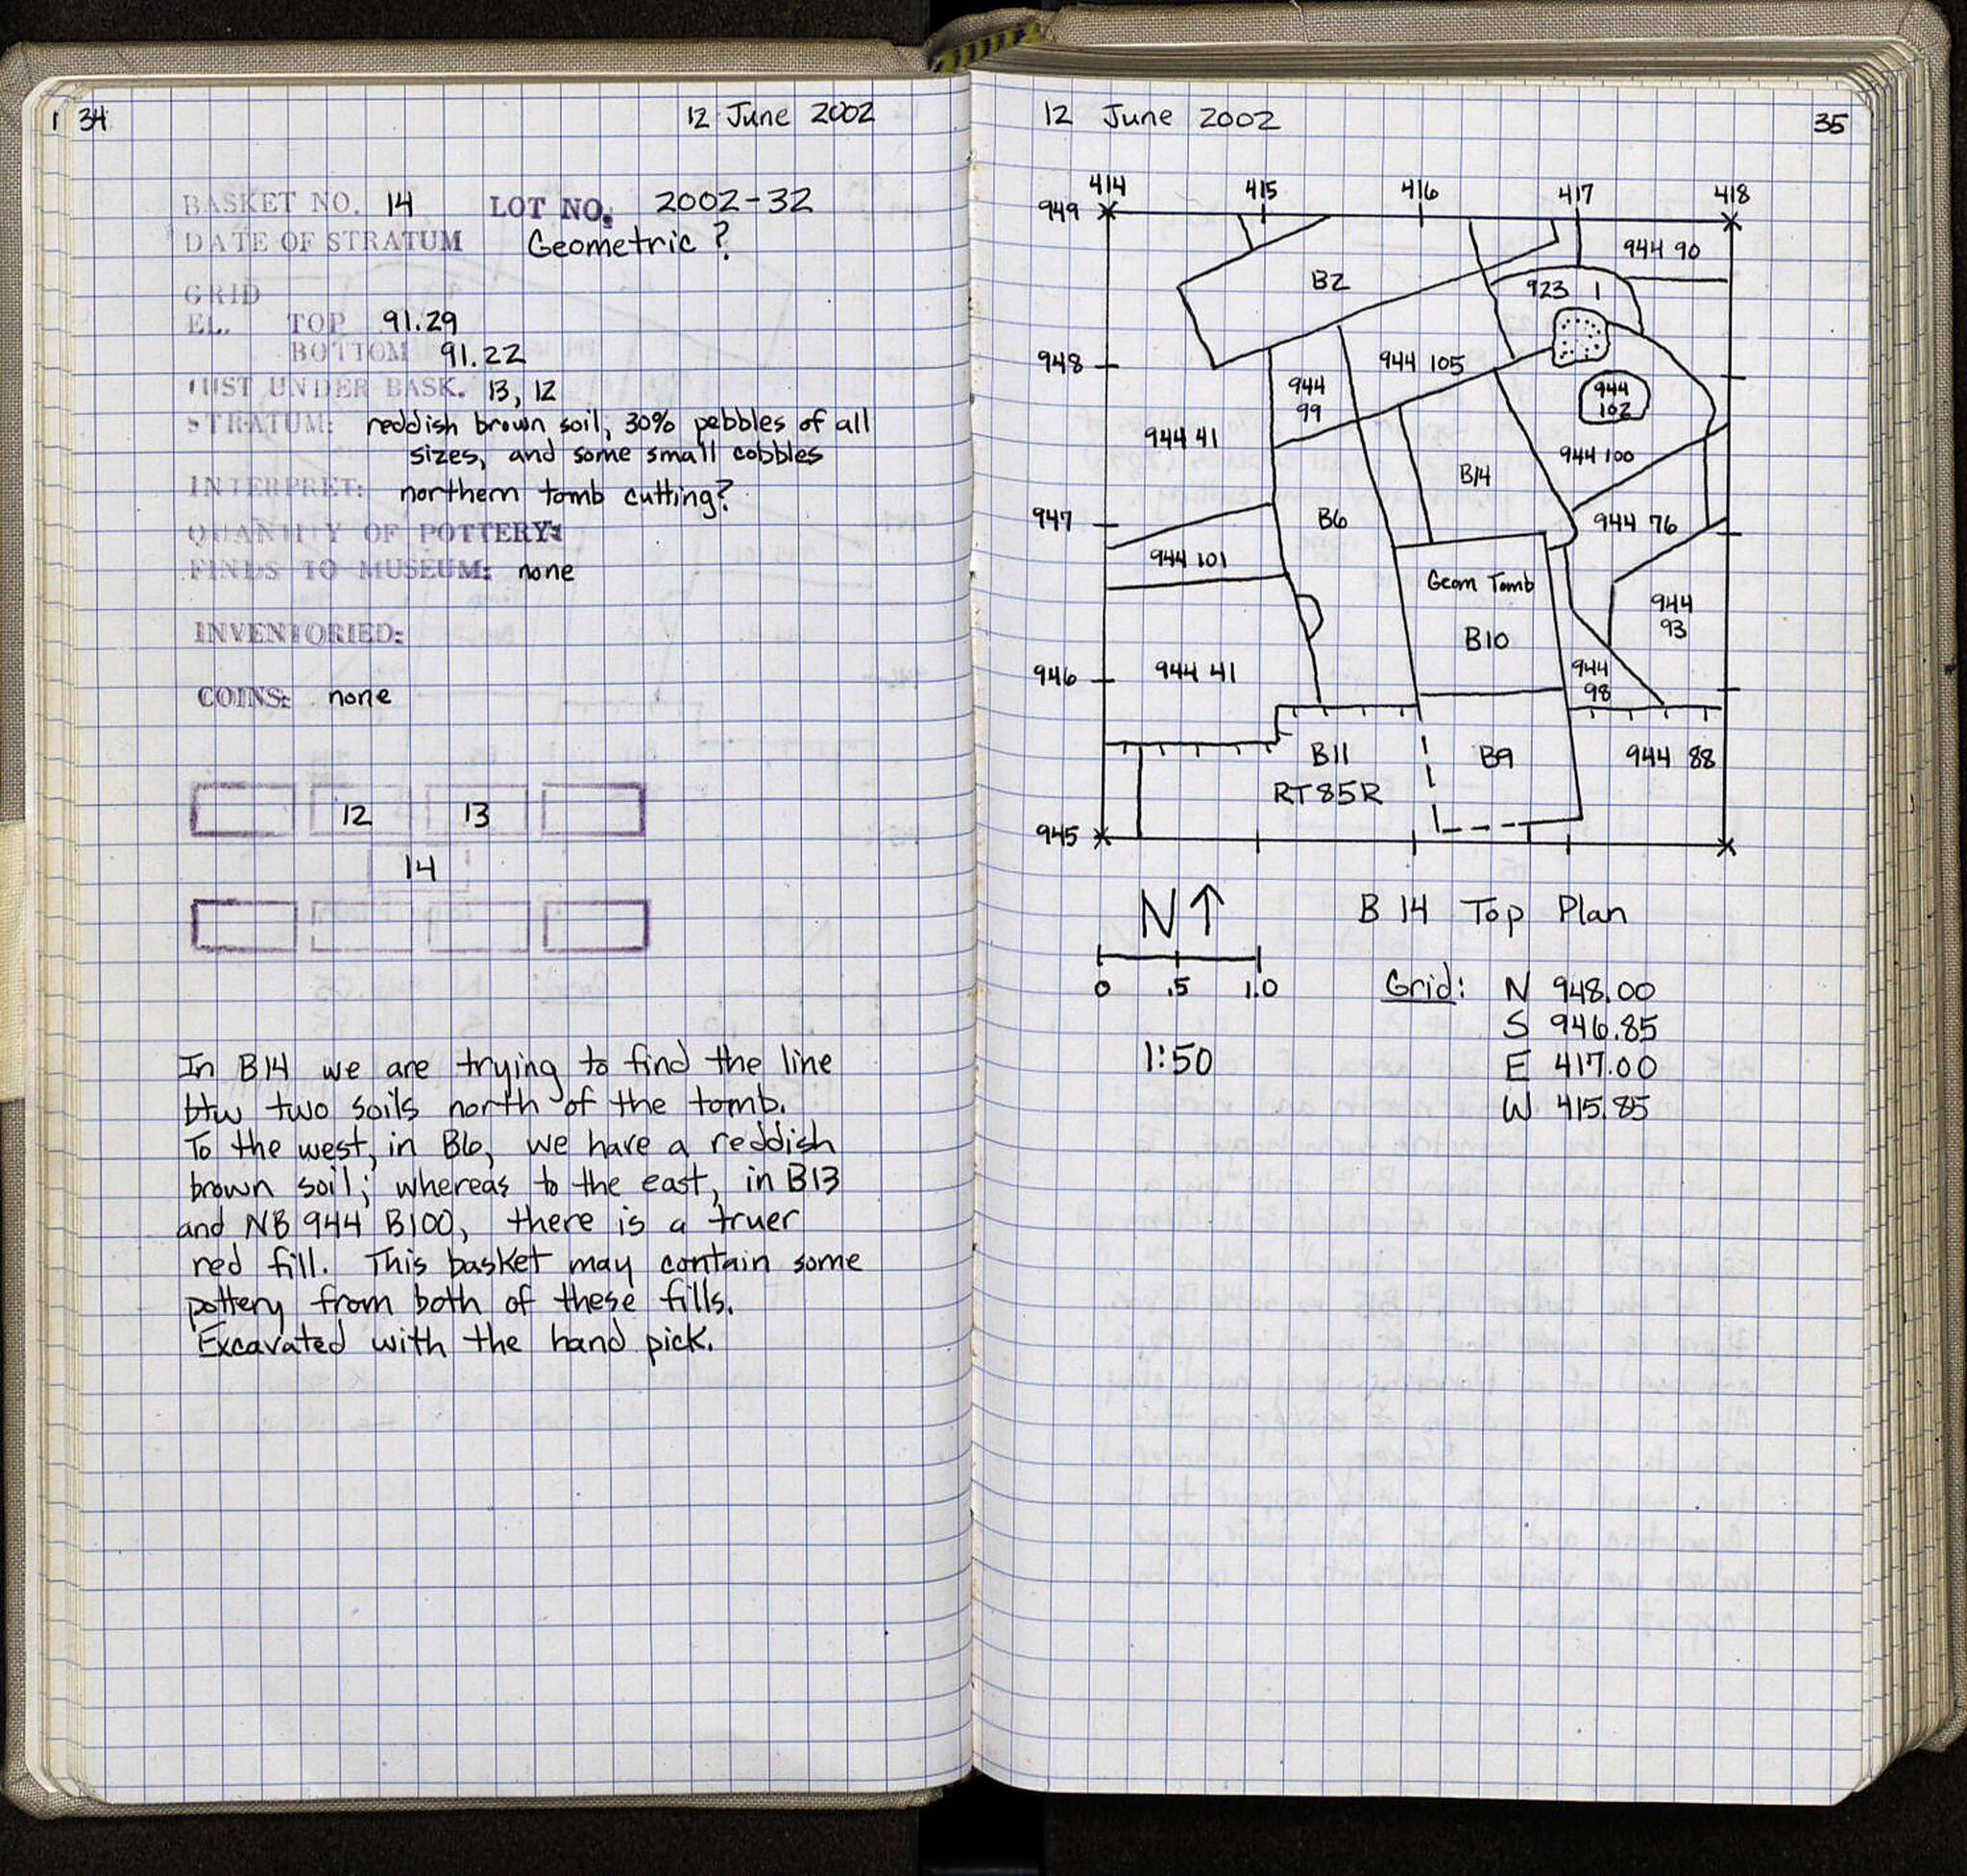 34
12 June 2002
BASKET NO. 14 LOT NO. 2002-32
DATE OF STRATUM Geometric ?
GRID
EL. TOP 91.29
BOTTOM 91.22
JUST UNDER BASK. 13, 12
STRATUM: reddish brown soil, 30% pebbles of all
sizes, and some small cobbles
INTERPRET: northern tomb cutting?
QUANTITY OF POTTERY:
FINDS TO MUSEUM: none
INVENTORIED:
COINS: none
12 13
14
In B14 we are trying to find the line
btw two soils north of the tomb.
To the west, in B6, we have a reddish
brown soil; whereas to the east, in B13
and NB 944 B100, there is a truer
red fill. This basket may contain some
pottery from both of these fills.
Excavated with the hand pick.
12 June 2002
35
414 415 416 417 418
949
944 90
B2
923 1
948
944 105
944
99
944
102
944 41
944 100
B14
947
B6
944 76
944 101
Geom Tomb
944
93
B10
946
944 41
944
98
B11
B9
944 88
RT85R
945
N↑
B 14 Top Plan
0 .5 1.0
Grid: N 948.00
S 946.85
1:50
E 417.00
W 415.85